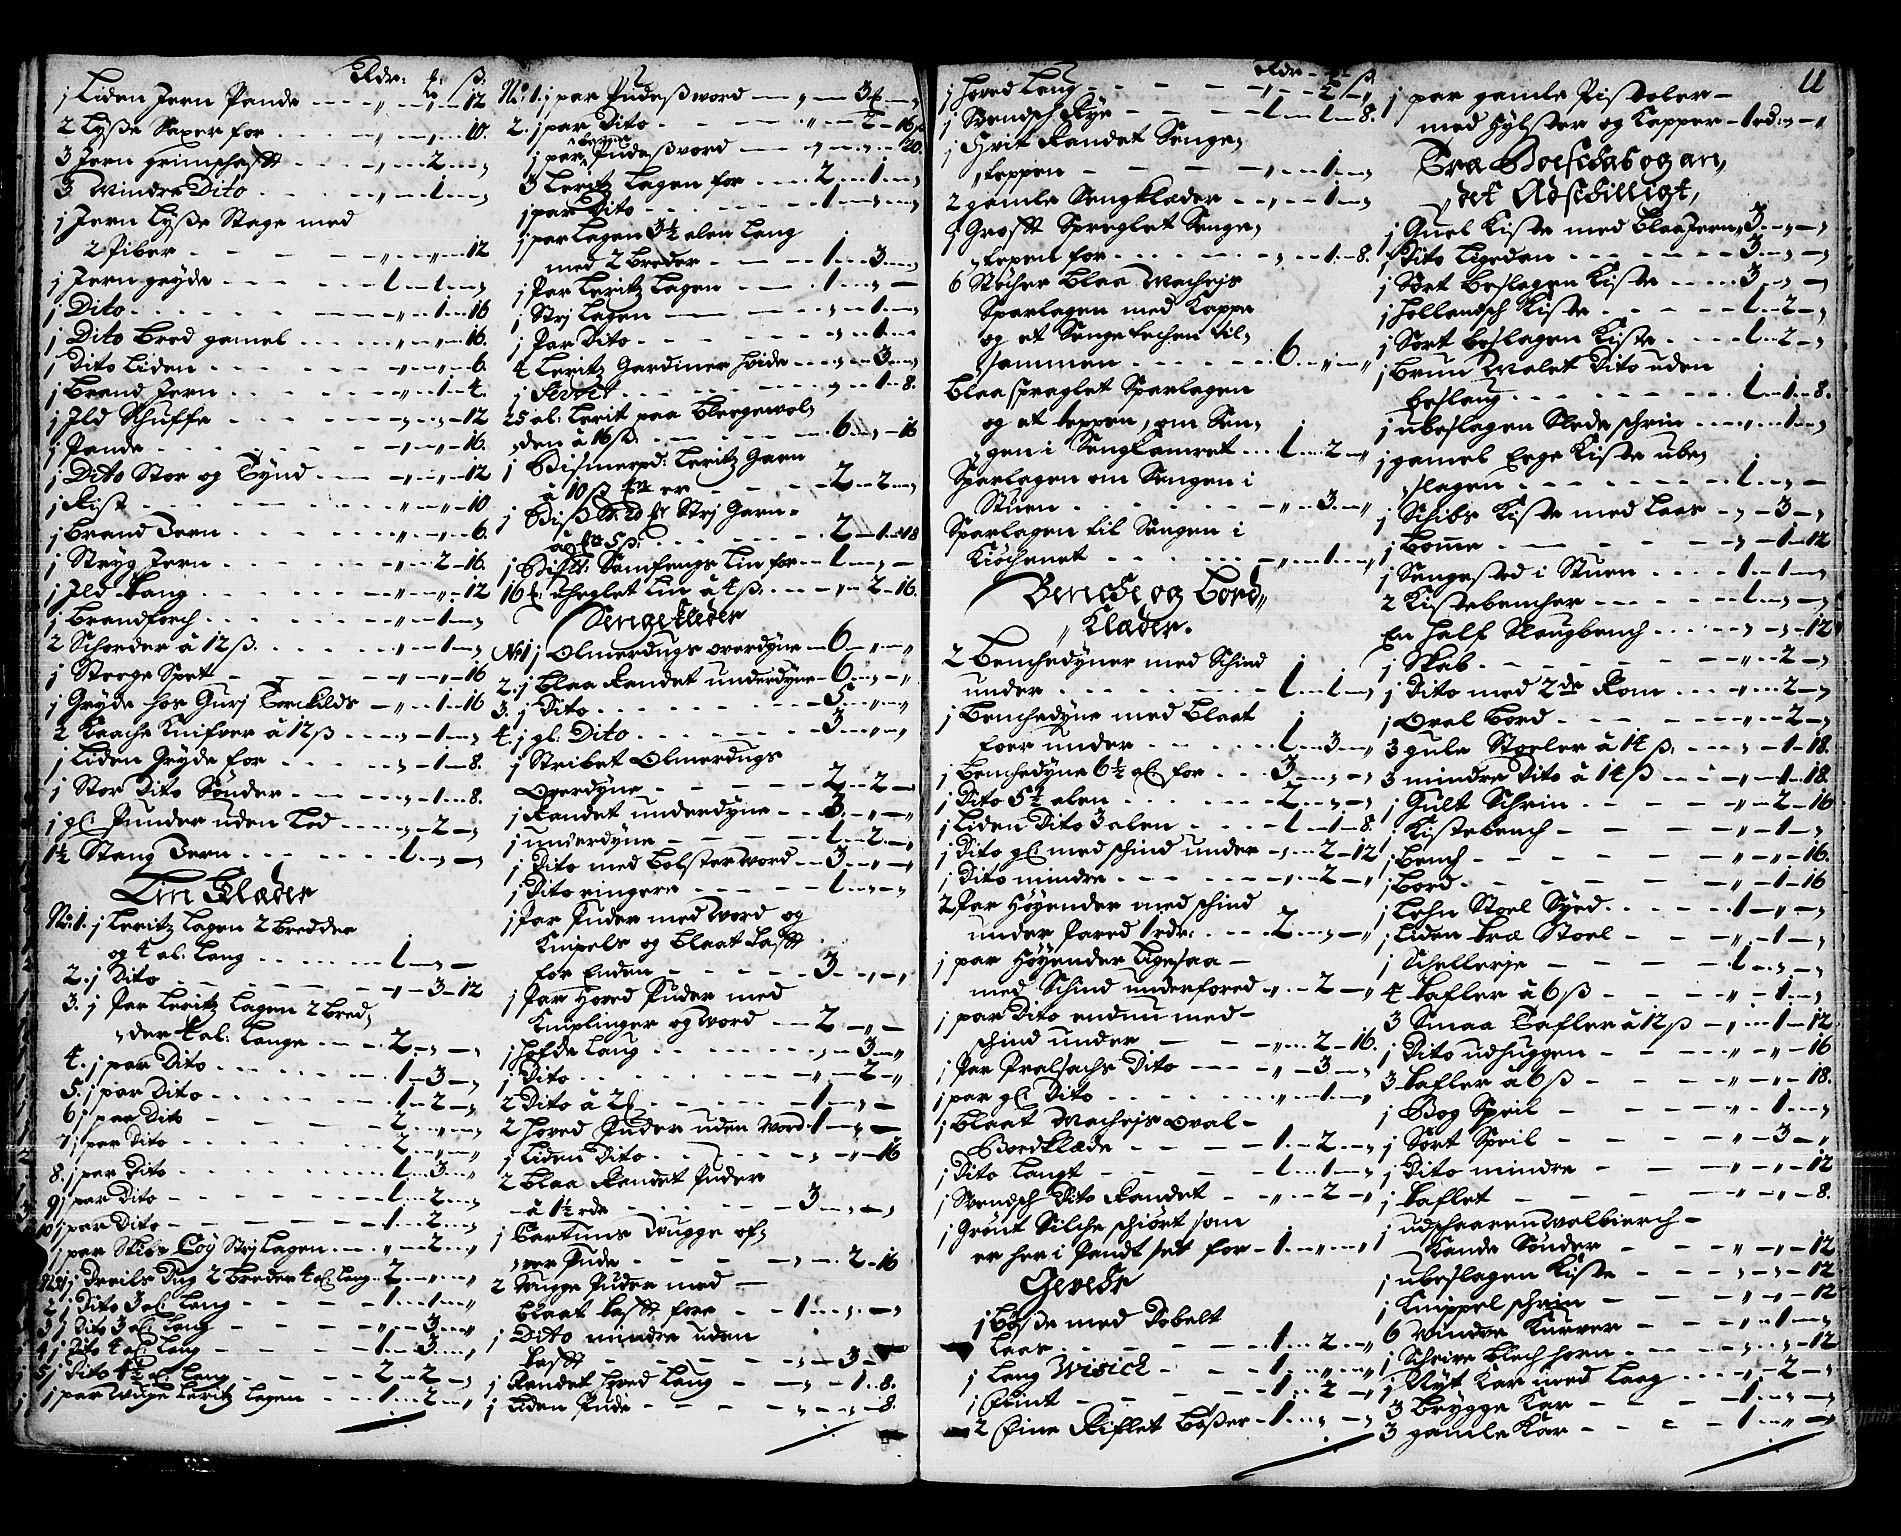 Rdr: ʒ: ß.
j Liden Jern Pande - - - „ - „ - 12
2 Lyße Saxer for - - - „ - „ - 10.
3 Jern - - „ - 2 - „
3 Mindre Dito - - - „ - 1 - „
j Jern Lyße Stage med
2 Piber - - - „ - „ - 12
j Jerngryde - - - 1 - 1 - „
j Dito - - - „ - 1 - 16
j Dito Bred gamel - - - „ - „ - 16.
j Dito Liden - - - „ - „ - 6.
j Brand Jern - - - „ - 1 - 4.
j Ild Schuffe - - - „ - „ - 12
j Pande - - - „ - „ - 16.
j Dito Stor og Tynd - - - „ - „ - 12
j Rist - - - „ - „ - 10
j Brand Jern - - - „ - „ - 6.
j Stryg Jern - - - „ - 2 - 16.
j Ild tang - - - „ - „ - 12
j Brandforch - - - „ - 1 - „
2 Schorder à 12 ß - - - „ - 1 - „
j Steege Spet - - - „ - „ - 16
j Gryde hos Gurj Torchilds - „ - 1 - 16
2 Haache Knifver à 12 ß - - - „ - 1 - „
j Liden Gryde for - - - „ - 1 - 8.
j Stor Dito Sønder - - - „ - 1 - 8.
j gl: Punder uden Lod - - - „ - 2 - „
1½ Stang Jern - - - 1 - „ - „
Lin Klæder
No: 1. j Leritz Lagen 2 bredder
og 4 al: lang - - - 1 - „ - „
2. j Dito - - - „ - 3 - 12
3. j Par Leritz Lagen 2 bred„
„der 4 al: Lange - - - 2 - „ - „
4. j par Dito - - - 1 - 3 - „
5. j par Dito - - - 1 - 2 - „
6 j par Dito - - - 2 - „ - „
7. j par Dito - - - 2 - „ - „
8. j par Dito - - - 1 - 3 - „
9 j par Dito - - - 1 - 2 - „
10 j par Dito - - - 1 - 2 - „
j par Skibs Töy Strj Lagen - - - „ - 2 - „
No 1 j Dreils Dug 2 breder 4 al: Lang - 2 - „ - „
2 j Dito 3 al: lang - - - 1 - 1 - „
3 j Dito 3 al: lang - - - „ - 3 - „
4 j Dito 4 al: lang - - - 1 - 3 - „
5 j Dito 4½ al: lang - - - 2 - 2 - „
j par Leritz Lagen - - - 1 - 2 - „
No: 1. j par Pudeßword - „ - 3 - „
2. j par Dito - - - „ - 2 - 16
j par Pudeßword - - - „ - „ - 20.
3 Leritz Lagen for - - - 2 - 1 - „
j par Dito - - - 1 - „
j par Lagen 3½ alen Lang
med 2 breder - - - 1 - 3 - „
j Par Leritz Lagen - - - 1 - „ - „
j Strj Lagen - - - „ - 1 - „
j Par Dito - - - „ - 1 - „
4 Leritz Gardiner - - - „ - 3 - „
j - - - „ - 1 - 8.
25 al: Lerit paa Bleegevol„
„den à 16 ß. - - - 6 - „ - 16
j Bismerpd: Leritz Garn
à 10 ß er - - - 2 - 2 - „
j Strj Garn
à 5 ß: - - - 2 - 1 - 18
j Lin for - 1 - „ - „
16 heglet Lin à 4 ß: - - - „ - 2 - 16.
Sengeklæder
No 1 j Olmerdugs overdyne - 6 - „ - „
2. j blaa Randet underdyne - 6 - „ - „
3. j Dito - - - 5 - „ - „
4. j gl: Dito - - - 3 - „ - „
j Stribet Olmerdugs
Overdyne - - - 2 - 2 - „
j Randet underdyne - 3. - „ - „
j underdyne - - - 1 - 2 - „
j Dito med Bolsterword - 3 - „ - „
j Dito ringere - - - 1 - „ - „
j Par Puder med Word og
Knipels og blaat taft
for Enden - - - 3 - „ - „
j Par Hoved Puder med
Kniplinger og Word - - 2 - „ - „
j Hofde Lang - - - „ - 3 - „
j Dito - - - „ - 2 - „
2 Dito à - - - 1 - „ - „
2 Hoved Puder uden Word - 1 - „ - „
j Liden Dito - - - „ - „ - 16
2 blaa Randet Puder
à 1½ rdr - - - 3 - „ - „
j Cartuns Wugge of„
„ver Pude - - - „ - 2 - 16
2 Wugge Puder med
blaat taft fore - - 1 - „ - „
j Dito mindre uden
taft - - - „ - 3 - „
j Randet Hoved Lang - - „ - 1 - 8.
j Liden Pude - - - „ - „ - 8.
Rdr - ʒ ß
j Hoved Lang - - - „ - 2 - „
j Svensch Rye - - - 1 - 1 - 8.
j Hvit Randet Senge„
„teppen - - - „ - 1 - „
2 gamle Sengklæder - - „ - 1 - „
j Groft Spreglet Senge„
„tepen for - - - „ - 1 - 8.
6 Støcher blaa Machejs
Sparlagen med Kappe
og et Senge techen til„
„sammen - - - 6 - „ - „
Blaaspreglet Sparlagen
og et teppen, om Sen„
„gen i Sengkamret - 1 - 2 - „
Sparlagen om Sengen i
Stuen - - - „ - 3 - „
Sparlagen til Sengen i
Kiøchenet - - - „ - 1 - „
Benche og Bord„
„Klæder.
2 Benchedyner med Schind
under - - - 1 - 1 - „
j Benchedyne med blaat
foer under - - - 1 - 3 - „
j Benchedyne 6½ al: for - 3 - „ - „
j Dito 5½ alen - - - 2 - „ - „
j Liden Dito 3 alen - - - 1 - 1 - 8.
j Dito gl: med schind under - „ - 2 - 12
j Dito mindre - - - „ - 2 - „
2 Par Høyender med schind
under Pared 1 rdr: - - 2 - „ - „
j par Høyender Ligesaa
med Schind underfored - „ - 2 - „
j par Dito endnu med
schind under - - - „ - 2 - 16.
j Par Dito - - „ - 3 - „
j par gl: Dito - - - „ - 1 - „
j blaat Machejs Oval
Bordklæde - - - 1 - 2 - „
j Dito Langt - - - 1 - 1 - „
j Svensch Dito Randet - „ - 2 - „
j Grönt Silche schiört som
er her i Pandt sat for - 1 - „ - „
Gevehr
j Bøße med Dobelt
Laas - - - 1 - 2 - „
j Lang - - - 1 - „ - „
j Flint - - - 1 - 2 - „
2 Fine Riflet Bøßer - 1 - „ - „
11
j par gamle Pistoler
med Hylster og Kapper - 1 rdr: - „
Træ Boeschab og an„
„det Adschilligt,
j Guel Kiste med Blaa Jern - 3 - „ - „
j Dito Ligedan - - - 3 - „ - „
j Sort beslagen Kiste - - - 3 - „ - „
j Hollandsch Kiste - - - 1 - 2 - „
j Sort beslagen Kiste - - 1 - 2 - „
j Brun Malet Dito uden
beslaug - - - 1 - 1 - 8.
j ubeslagen Slede schrin - - „ - 1 - „
j gamel Eege Kiste ube„
„slagen - - - 1 - „ - „
j Schibs Kiste med Laas - „ - 3 - „
j Bomme - - - „ - 1 - 12
j Sengested i Stuen - - 1 - 1 - „
2 Kistebencher - - - 1 - „ - „
En half Slaugbench - - „ - „ - 12
j Skab - - - „ - 2 - „
j Dito med 2de Rom - - „ - 2 - „
j Oval bord - - - „ - 2 - „
3 gule Stoeler à 14 ß: - - „ - 1 - 18.
3 mindre Dito à 14 ß - - „ - 1 - 18.
j Gult Schrin - - - „ - 2 - 16
j Kistebench - - - „ - 1 - „
j bench - - - „ - „ - 16.
j Bord - - - „ - 1 - 16
j Lehn Stoel Syed - - - 1 - „ - „
j Liden træ Stoel - - „ - 1 - „
j Schellerje - - - 1 - „ - „
4 tafler à 6 ß - - - „ - 1 - „
3 Smaa Tafler à 12 ß - „ - 1 - 12
j Dito udhuggen - - - „ - „ - 16
3 tafler à 6 ß - - - „ - „ - 18.
j Bog Speil - - - „ - 1 - „
j Sort Speil - - - „ - 3 - „
j Dito mindre - - „ - „ - 12
j taflet - - - „ - „ - 8.
j udschaaren Walbierch
Kande Sønder - - „ - „ - 12
j ubeslagen Kiste - - „ - „ - 12
j Knippel schrin - - „ - „ - 12
6 Mindre Kurver - - „ - 1 - „
j Schrive blech horn - - „ - „ - 12
j Nyt Kar med Laag - - „ - 2 - „
3 Brygge Kar - - - 1 - „ - „
3 gamle Kar - - - 1 - „ - „